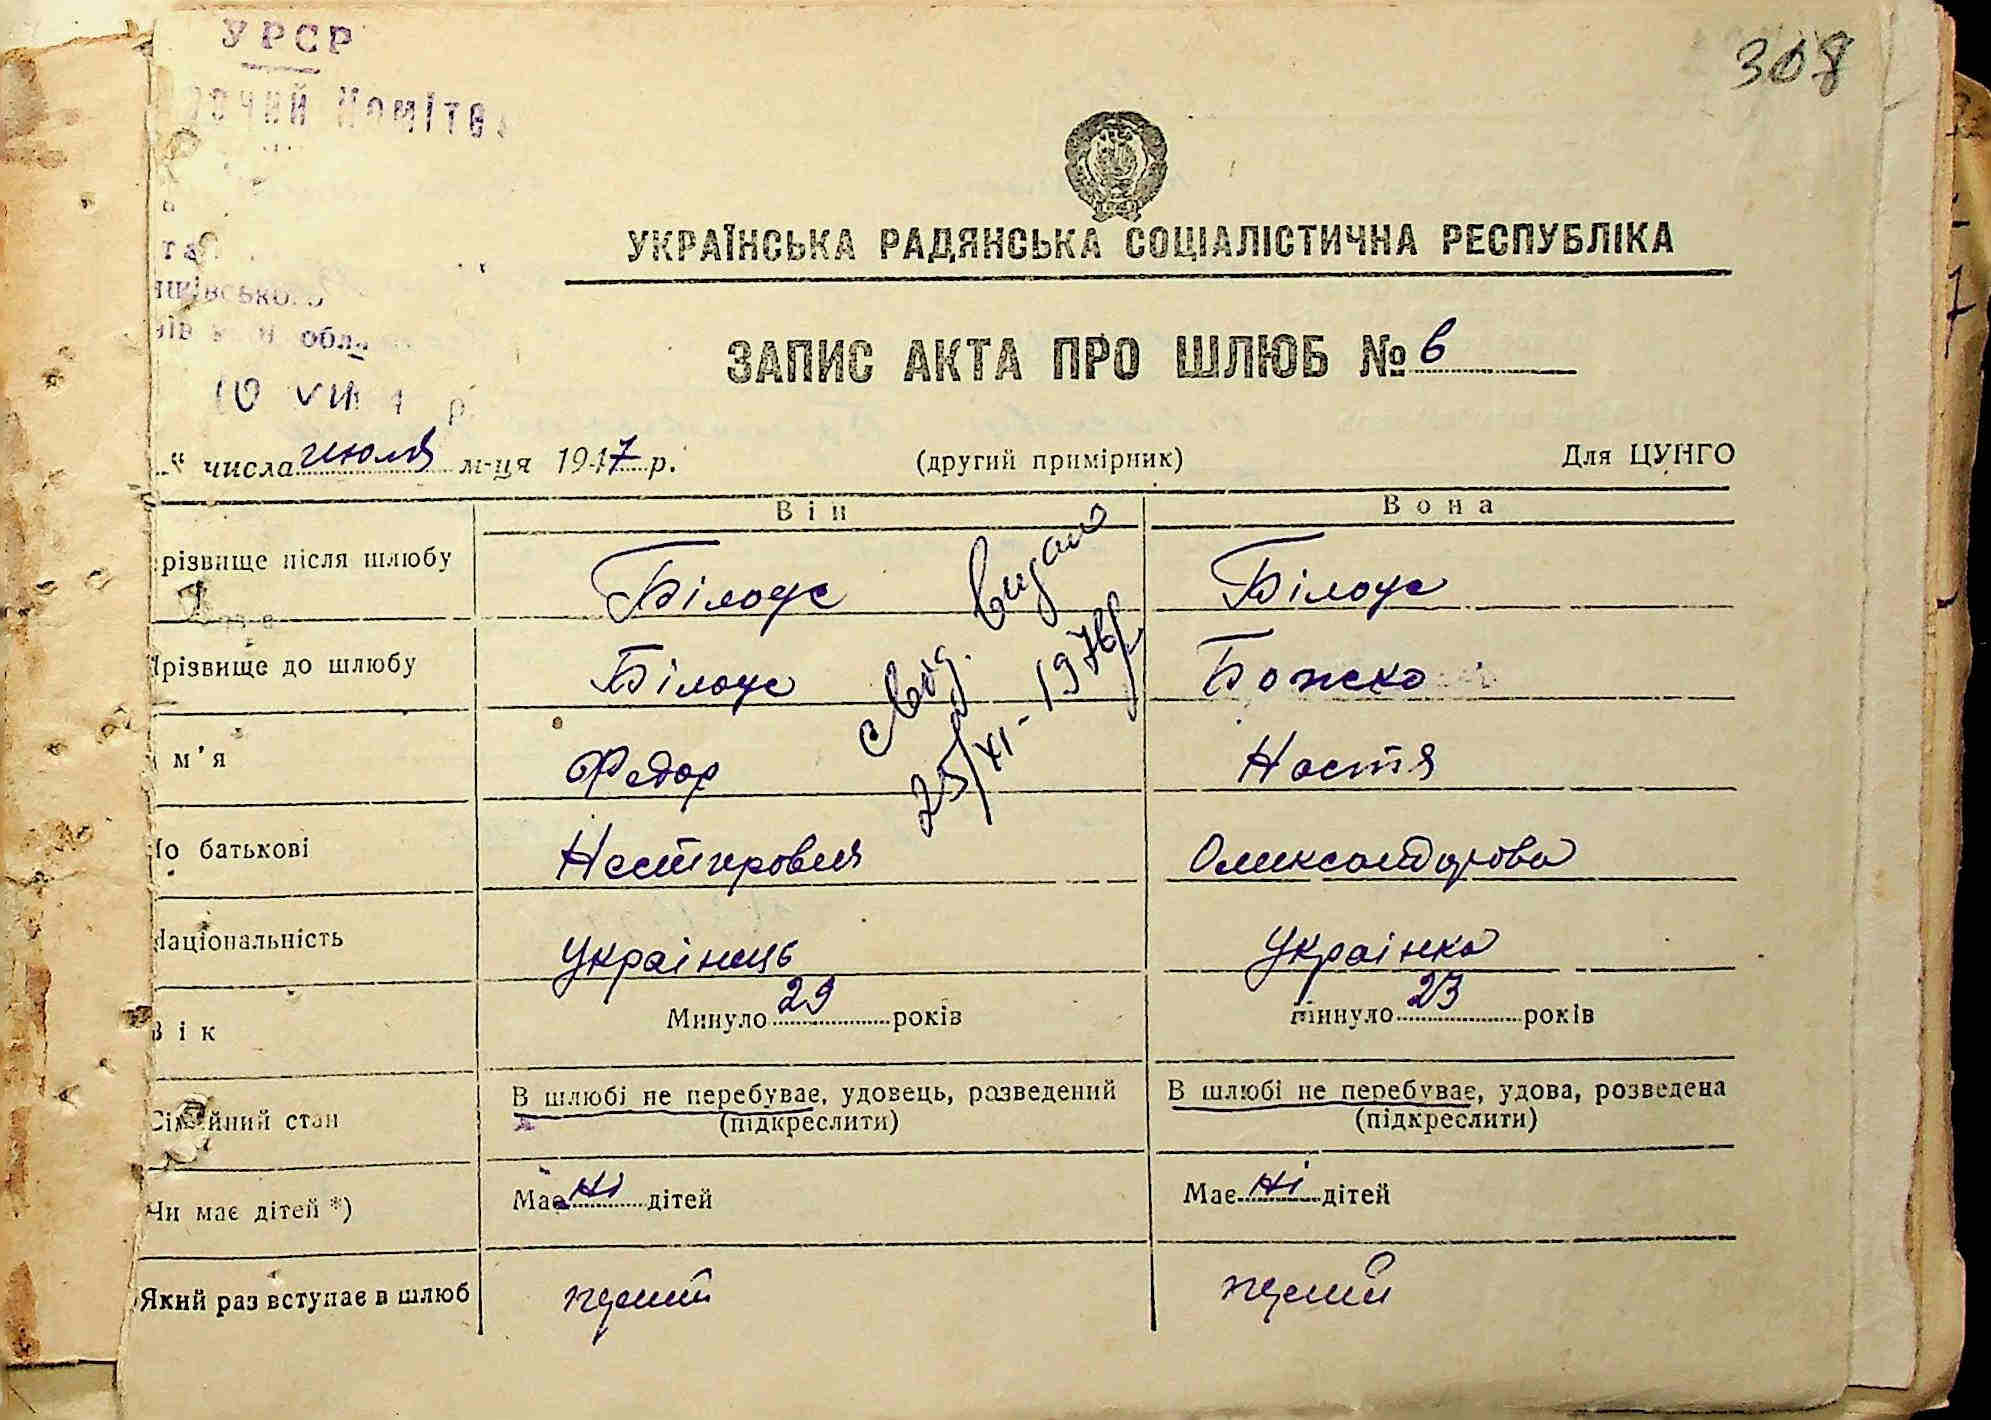 УРСР
308
УКРАЇНСЬКА РАДЯНСЬКА СОЦІАЛІСТИЧНА РЕСПУБЛІКА
ЗАПИС АКТА ПРО ШЛЮБ № 6
" числа июля м-ця 1947 р. (другий примірник) Для ЦУНГО
Він Вона
різвище після шлюбу Білоус Білоус
різвище до шлюбу Білоус Божко
м'я Федор Настя
о батькові Нестирович Олександрова
Національність Українець Українка
Вік Минуло 29 років минуло 23 років
Сімейний стан В шлюбі не перебуває, удовець, розведений (підкреслити) В шлюбі не перебуває, удова, розведена (підкреслити)
Чи має дітей *) Має ні дітей Має ні дітей
Який раз вступає в шлюб перший перший
свід. видано
25/XI-1976р.